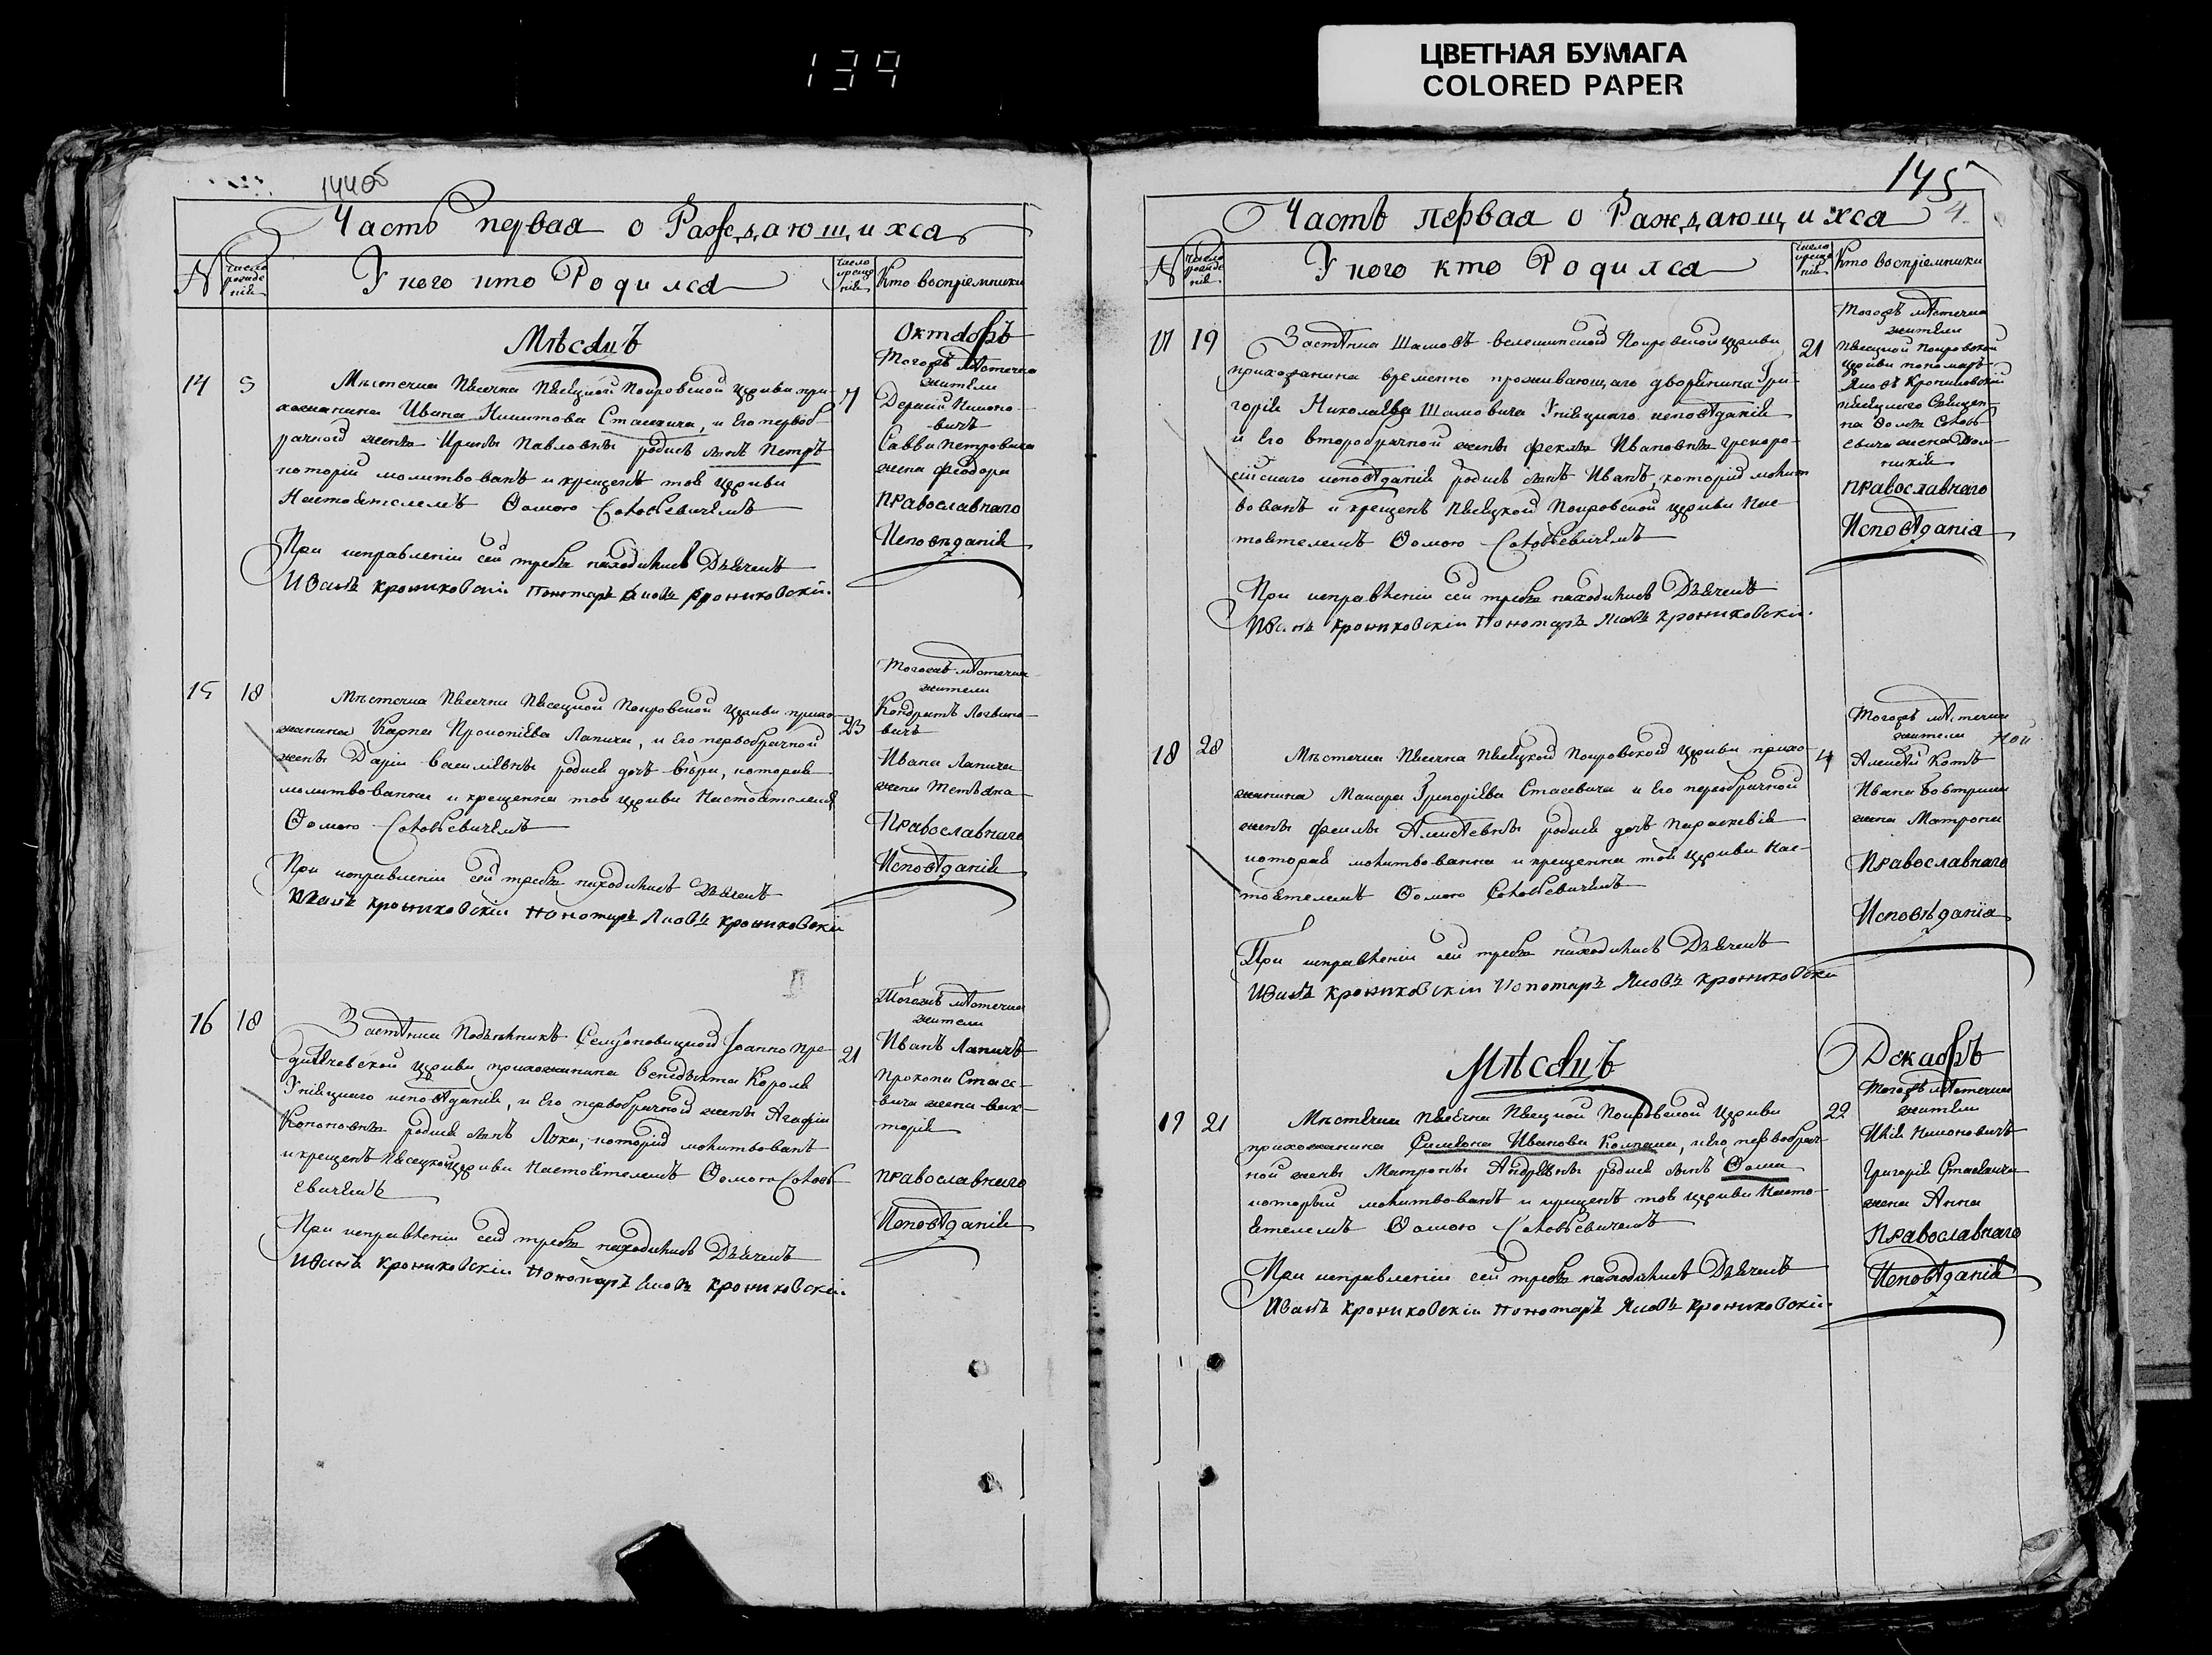 139
ЦВЕТНАЯ БУМАГА
COLORED PAPER
144об
Часть первая о Раждающихся
N
число рожденія
У кого кто Родился
число крещенія
Кто воспріемники
Мѣсяцъ
Октябрь
14
5
Мѣстечка Пѣсечна Пѣсецкой Покровской церкви при-
хожанина Ивана Никитова Стасевича, и Его первоб-
рачной жены Ирины Павловны родися сынъ Петръ
которій молитвованъ и крещенъ той церкви
Настоятелемъ Ѳомою Соловьевичемъ
При исправленіи сей требы находились Дьячекъ
Иванъ Крониковскій Пономарь Яковъ Крониковскій.
7
Тогожъ мѣстечка
жители
-вичъ
Савви Петровича
жена Феодора
Православнаго
Исповѣданія
15
18
Мѣстечка Пѣсечна Пѣсецкой Покровской церкви прихо-
жанина Карпа Прокопіева Лапича, и Его первобрачной
жены Даріи Василіевны родися дочь Вѣра, которая
молитвованна и крещенна той церкви Настоятелемъ
Ѳомою Соловьевичемъ
При исправленіи сей требы находились Дьячекъ
Иванъ Крониковскій Пономарь Яковъ Крониковскій
23
Тогожъ мѣстечка
жители
Кондратъ Логвино-
вичъ
Ивана Лапича
жена Тетьяна
Православнаго
Исповѣданія
16
18
Застѣнка Семѣновицкой Іоанно Пре-
дитечевской церкви прихожанина Венедыкта Короля
Уніяцкаго исповѣданія, и Его первобрачной жены Агафіи
Кононовны родися сынъ Лука, которій молитвованъ
и крещенъ Пѣсецкой церкви Настоятелемъ Ѳомою Соловь-
евичемъ
При исправленіи сей требы находились Дьячекъ
Иванъ Крониковскій Пономарь Яковъ Крониковскій.
21
Тогожъ мѣстечка
жители
Иванъ Лапичъ
Прокопи Стасе-
вича жена Вик-
торія
Православнаго
Исповѣданія
145
4
Часть первая о Раждающихся
N
число рожденія
У кого кто Родился
число крещенія
Кто воспріемники
17
19
Застѣнка Шашовъ Велешинской Покровской церкви
прихожанина временно проживающаго дворянина Гри-
горія Николаева Шашовича Уніяцкаго исповѣданія
и Его второбрачной жены Феклы Ивановны Грекоро-
сійскаго исповѣданія родися сынъ Иванъ, которій молит-
вованъ и крещенъ Пѣсецкой Покровской церкви Нас-
тоятелемъ Ѳомою Соловьевичемъ
При исправленіи сей требы находились Дьячекъ
Иванъ Крониковскій Пономарь Яковъ Крониковскій.
21
Тогожъ мѣстечка
жители
Пѣсецкой Покровской
церкви пономарь
Яковъ Крониковскій
Пѣсецкаго Священ-
ка Ѳомы Соловь-
евича жена Дом-
никія
Православнаго
Исповѣданія
18
28
Мѣстечка Пѣсечна Пѣсецкой Покровской церкви прихо-
жанина Макара Григоріева Стасевича и Его первобрачной
жены Феклы Алексѣевны родися дочь Параскевія
которая молитвованна и крещенна той церкви Нас-
тоятелемъ Ѳомою Соловьевичемъ
При исправленіи сей требы находились Дьячекъ
Иванъ Крониковскій Пономарь Яковъ Крониковскій
4
Тогожъ мѣстечка
жители
Ной
Алексѣй Котъ
Ивана Бовтрика
жена Матрона
Православнаго
Исповѣданія
Мѣсяцъ
Декабрь
19
21
Мѣстечка Пѣсечна Пѣсецкой Покровской Церкви
прихожанина Симеона Иванова Колпака, и Его первобрач-
ной жены Матроны Андреевны родися сынъ Ѳома
который молитвованъ и крещенъ той церкви Насто-
ятелемъ Ѳомою Соловьевичемъ
При исправленіи сей требы находились Дьячекъ
Иванъ Крониковскій Пономарь Яковъ Крониковскій.
22
Тогожъ мѣстечка
жители
Илія Никоновичъ
Григорія Стасевича
жена Анна
Православнаго
Исповѣданія